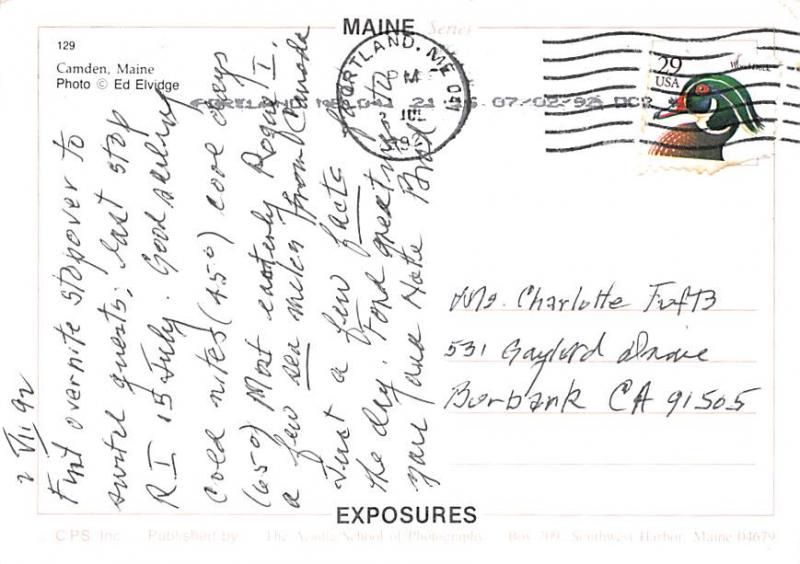 MAINE
Series
129
Camden, Maine
Photo © Ed Elvidge
PORTLAND, ME 041
PM
JUL
PORTLAND ME 041 21 07/02/92
29
USA
Wood Duck
2 VII 92
First overnite stopover to
switch guests; last stop
R I 15 July. Good sailing
cold nites (45°) cool days
(65°) Most easterly Rogue I.
a few sea miles from Canada
Just a few facts for
the day. Fond greetings to
you and Nate Brad
Ms. Charlotte Tufts
531 Gaylord Drive
Burbank CA 91505
EXPOSURES
C.P.S. Inc. Published by: The Acadia School of Photography Box 709, Southwest Harbor, Maine 04679